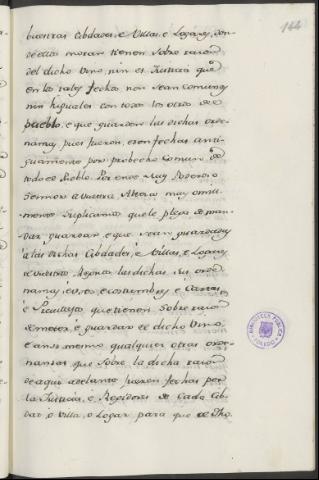 144
buestras Cibdades, é Villas, e Logares, don
de ellos moran tienen sobre razon
del dicho Vino, nin es Justicia que
en los tales fechos non sean comunes
nin higuales con todos los otros del
pueblo, e que guarden las dichas orde
nanzas, pues fueron, e son fechas anti
guamente por probecho Comun de
todo el Pueblo. Por ende Muy Poderoso
Sennor á vuestra Alteza muy omill
mente suplicamos que le plega de man
dar guardar, e que sean guardadas
á las dichas Cibdades, é Villas, e Logares
de vuestros Regnos las dichas sus orde
nanzas, é usos, e costumbres, e Cartas
é Previllejos que tienen sobre razon
de meter, é guardar el dicho Vino,
e ansi mesmo qualquier otras orde
nanzas que sobre la dicha razon
de aqui adelante fueren fechas por
la Justicia, é Regidores de cada Cib
dad, ó Villa, ó Logar para que el dho.
BIBLIOTECA PUBLICA
TOLEDO